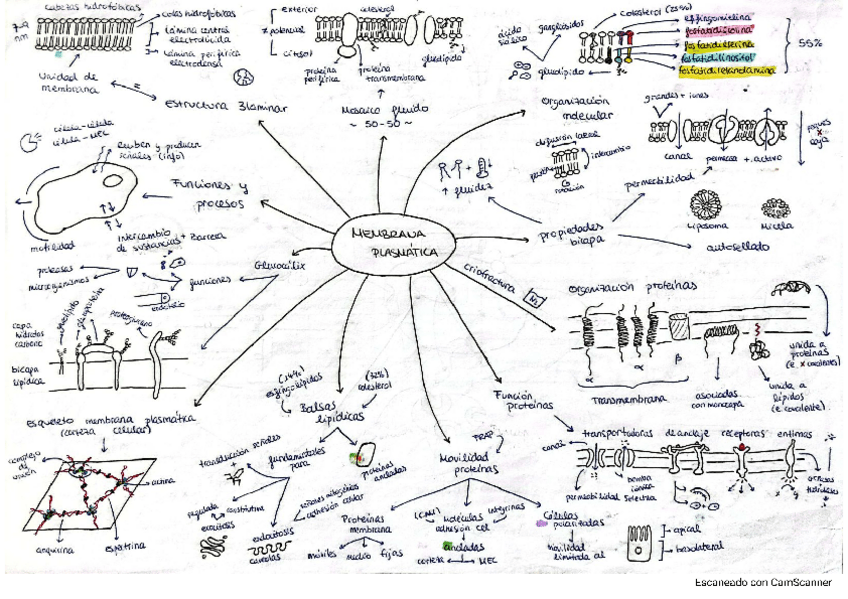 cabezas hidrofóbicas
colas hidrofóbicas
7-9
nm
lámina central
electrolúcida
lámina periférica
electrodensa
Unidad de
membrana
Estructura 3laminar
exterior
≠ potencial
citosol
colesterol
proteína
periférica
proteína
transmembrana
glucolípido
Mosaico fluido
~ 50-50 ~
ácido
siálico
gangliósidos
glucolípido
colesterol (25%)
esfingomielina
fosfatidilcolina
fosfatidilserina
fosfatidilinositol
fosfatidiletanolamina
55%
Organización
molecular
difusión lateral
intercambio
rotación
↑ fluidez
grandes + iones
canal
permeasa
t. activo
permeabilidad
Liposoma
Micela
propiedades
bicapa
autosellado
célula-célula
célula-MEC
Reciben y producen
señales (info)
Funciones y
procesos
motilidad
intercambio
de sustancias
+ Barrera
MEMBRANA
PLASMÁTICA
Glucocálix
funciones
proteasas
microorganismos
endotelio
capa
hidratos
carbono
glucolípido
glucoproteína
proteoglucano
bicapa
lipídica
criofractura
N₂
Organización proteínas
α
α
β
Transmembrana
asociadas
con monocapa
unida a
proteínas
(e. x covalentes)
unida a
lípidos
(e. covalente)
Esqueleto membrana plasmática
(corteza celular)
complejo
de unión
actina
anquirina
espectrina
(14%)
esfingolípidos
(32%)
colesterol
Balsas
lipídicas
transducción señales
+
fundamentales
para
proteínas
ancladas
regulada
constitutiva
exocitosis
endocitosis
caveolas
señales mitogénicas
adhesión celular
FRAP
Movilidad
proteínas
Proteínas
membrana
móviles
medio
fijas
(CAM)
moléculas
adhesión cel
integrinas
ancladas
corteza
MEC
Células
polarizadas
movilidad
limitada al
apical
basolateral
Función
proteínas
transportadoras
de anclaje
receptoras
enzimas
canal
bomba
iónica
permeabilidad selectiva
Escaneado con CamScanner